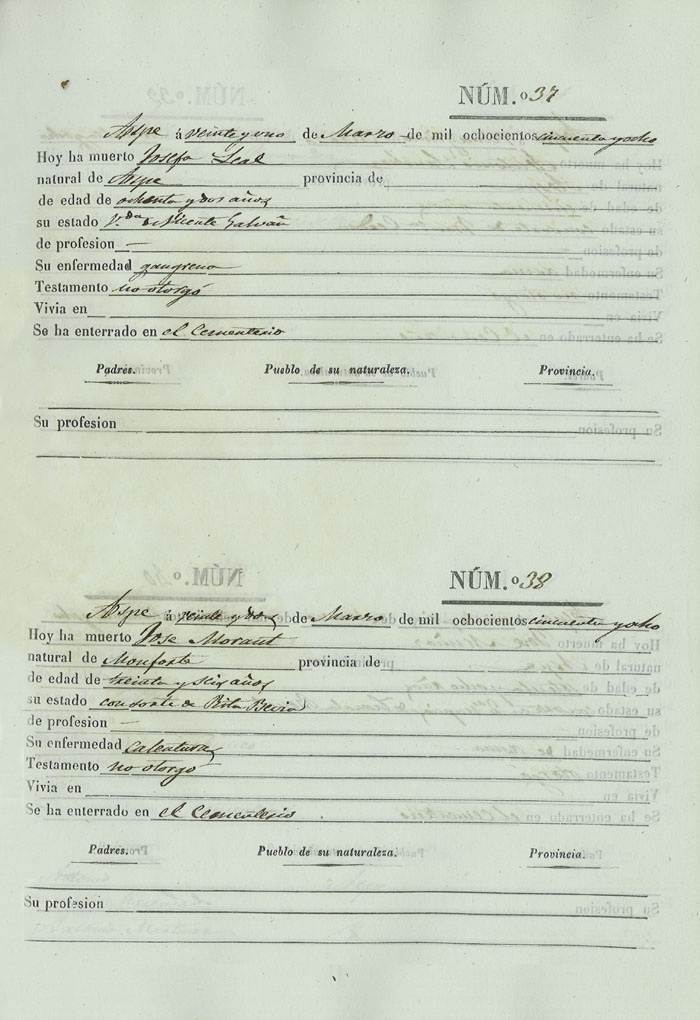 NÚM.º 37
Aspe á veinte y uno de Marzo de mil ochocientos cincuenta y ocho
Hoy ha muerto Josefa Leal
natural de Aspe provincia de
de edad de ochenta y dos años
su estado V.da de Vicente Galvañ
de profesion —
Su enfermedad gangrena
Testamento no otorgó
Vivia en
Se ha enterrado en el Cementerio
Padres. Pueblo de su naturaleza. Provincia.
Su profesion
NÚM.º 38
Aspe á veinte y dos de Marzo de mil ochocientos cincuenta y ocho
Hoy ha muerto Jose Morant
natural de Monforte provincia de
de edad de treinta y seis años
su estado consorte de Rita
de profesion —
Su enfermedad calentura
Testamento no otorgó
Vivia en
Se ha enterrado en el Cementerio
Padres. Pueblo de su naturaleza. Provincia.
Su profesion